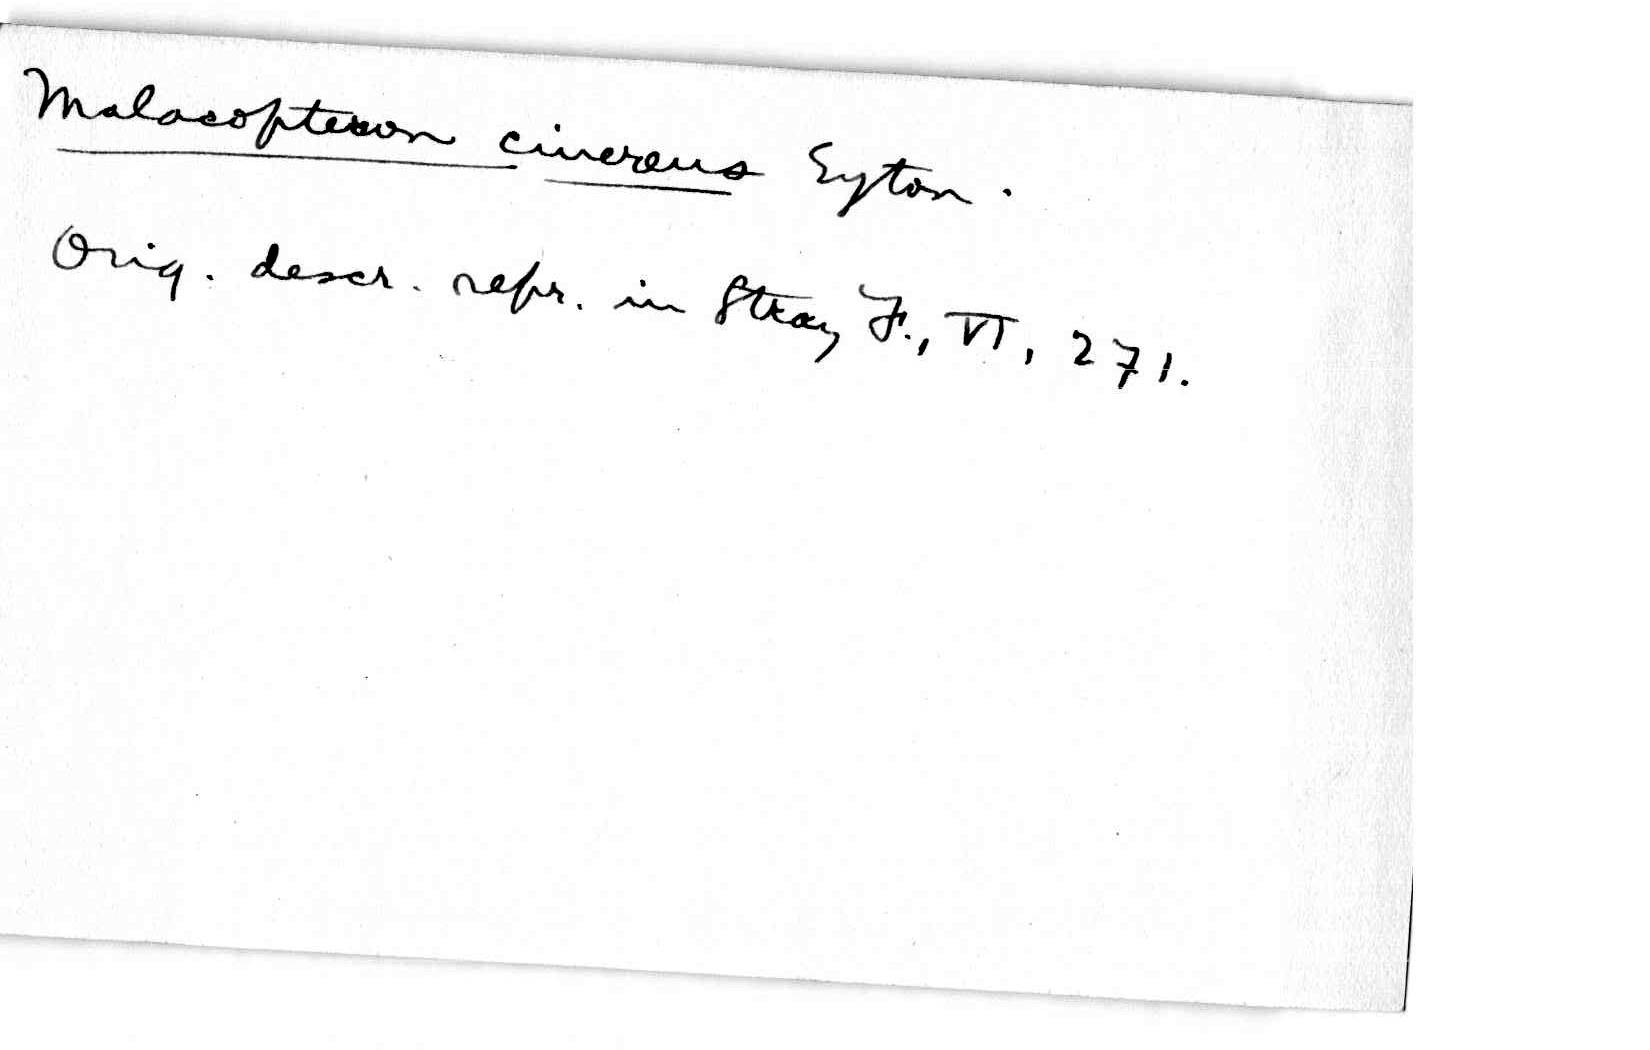 Malacopteron cinereus Eyton.
Orig. descr. repr. in Stray F., VI, 271.